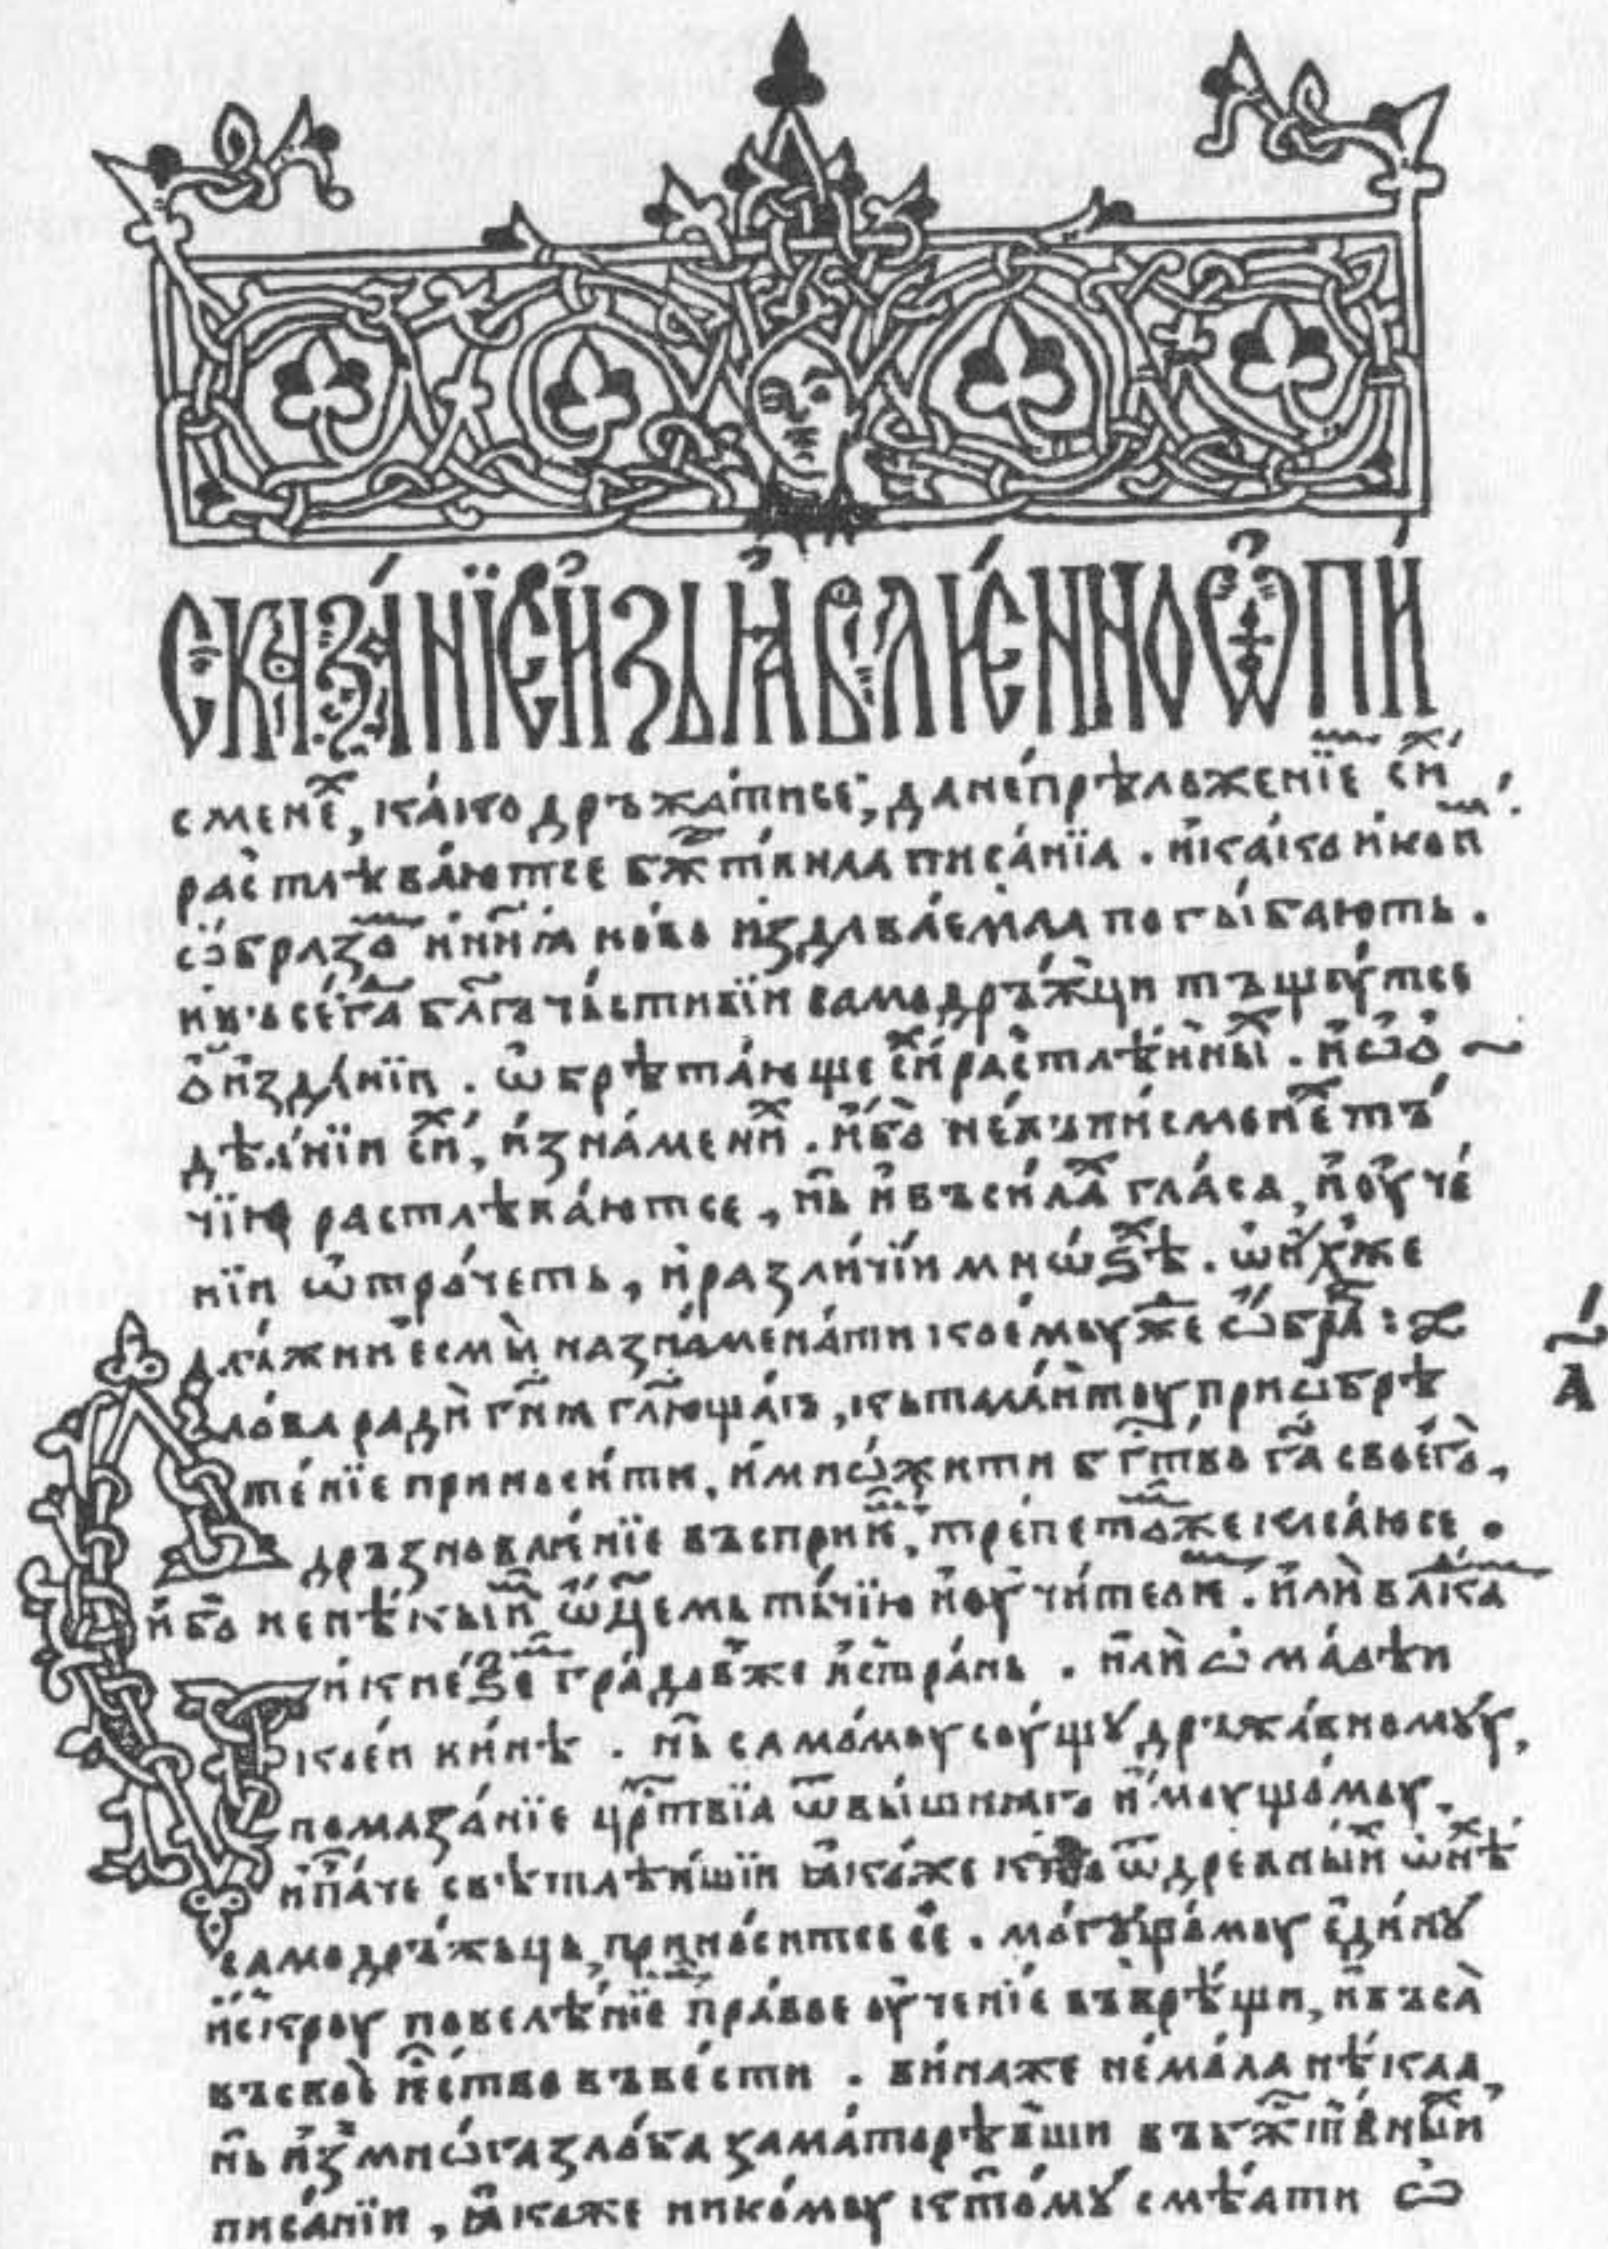 СКАЗА́НЇЕ И҆ЗЬꙖ҆ВЛЮ́ЕННО Ѡ҆ ПИ́
сменеⷯ, ка́ко дрьжа́тисе, да непрѣложенїе сиⷯ
растлѣва́ютсе бж҃твнаа писа́нїа. и҆ ка́ко
ѡ҆бразоⷨ и҆ нн҃ꙗ ново и҆здава́емаа погы́бають.
благочьстивїи самодръ́жци тъщоу́тсе
ѡ҆ и҆зда́нїи. ѡ҆брѣта́юще сиⷯ растлѣ́нныⷯ.
дѣа́нїи сиⷯ, и҆ зна́менїи. и҆бо̀ не въ пи́сменеⷯ тъ́
чїю растлѣва́ютсе, нь̀ и҆ въ си́лаⷯ гла́са, и҆ оу҆че́
нїи ѡ҆тро́четь, и҆ разли́чїи мнѡ́ѕѣⷯ. ѡ҆ ни́хже
дл́ьжни есмы̀ назна́менати коемоуже ѡ҆бра́
лова ради гн҃ꙗ гл҃юща́го, къ тала́нтоу приѡбрѣ
те́нїе приноси́ти, и҆ мнѡ́жити бг҃тво гд҃а своего̀,
дрьзновле́нїе въспри трепетоⷨ же касаюсе.
и҆бо̀ не нѣ́кыиⷨ ѡ҆ц҃емь тъ́чїю и҆ оу҆чи́телеⷨ. и҆лѝ вл҃ка
и҆ кнезеⷨ гра́довⷨ же и҆ стра́нь. и҆лѝ ѡ҆ ма́лѣи
коеи ви́нѣ. нь̀ само́моу соу́щꙋ дръжа́вномꙋ,
помаза́нїе цр҃твїа ѿ вы́шнꙗго и҆моущо́моу.
и҆ па́че свѣтлѣ́ишїи ꙗ҆ко́же кто ѿ древныиⷯ ѡ҆нѣⷯ
самодръ́жьць, прино́ситсе сїе. мо́гꙋщомоу еди́нꙋ
и҆́скроу повелѣ́нїеⷨ пра́вое оу҆че́нїе въврѣ́щи, и҆ въса̀
въ свое и҆́ство въве́сти. ви́на же не ма́ла нѣ́каа
нь̀ и҆з мнѡ́га злоба замато́рѣвши въ бж҃тве́ныⷯ
писа́нїи, ꙗ҆коже нико́моу к томꙋ́ смѣ́ати ѡ҆
А